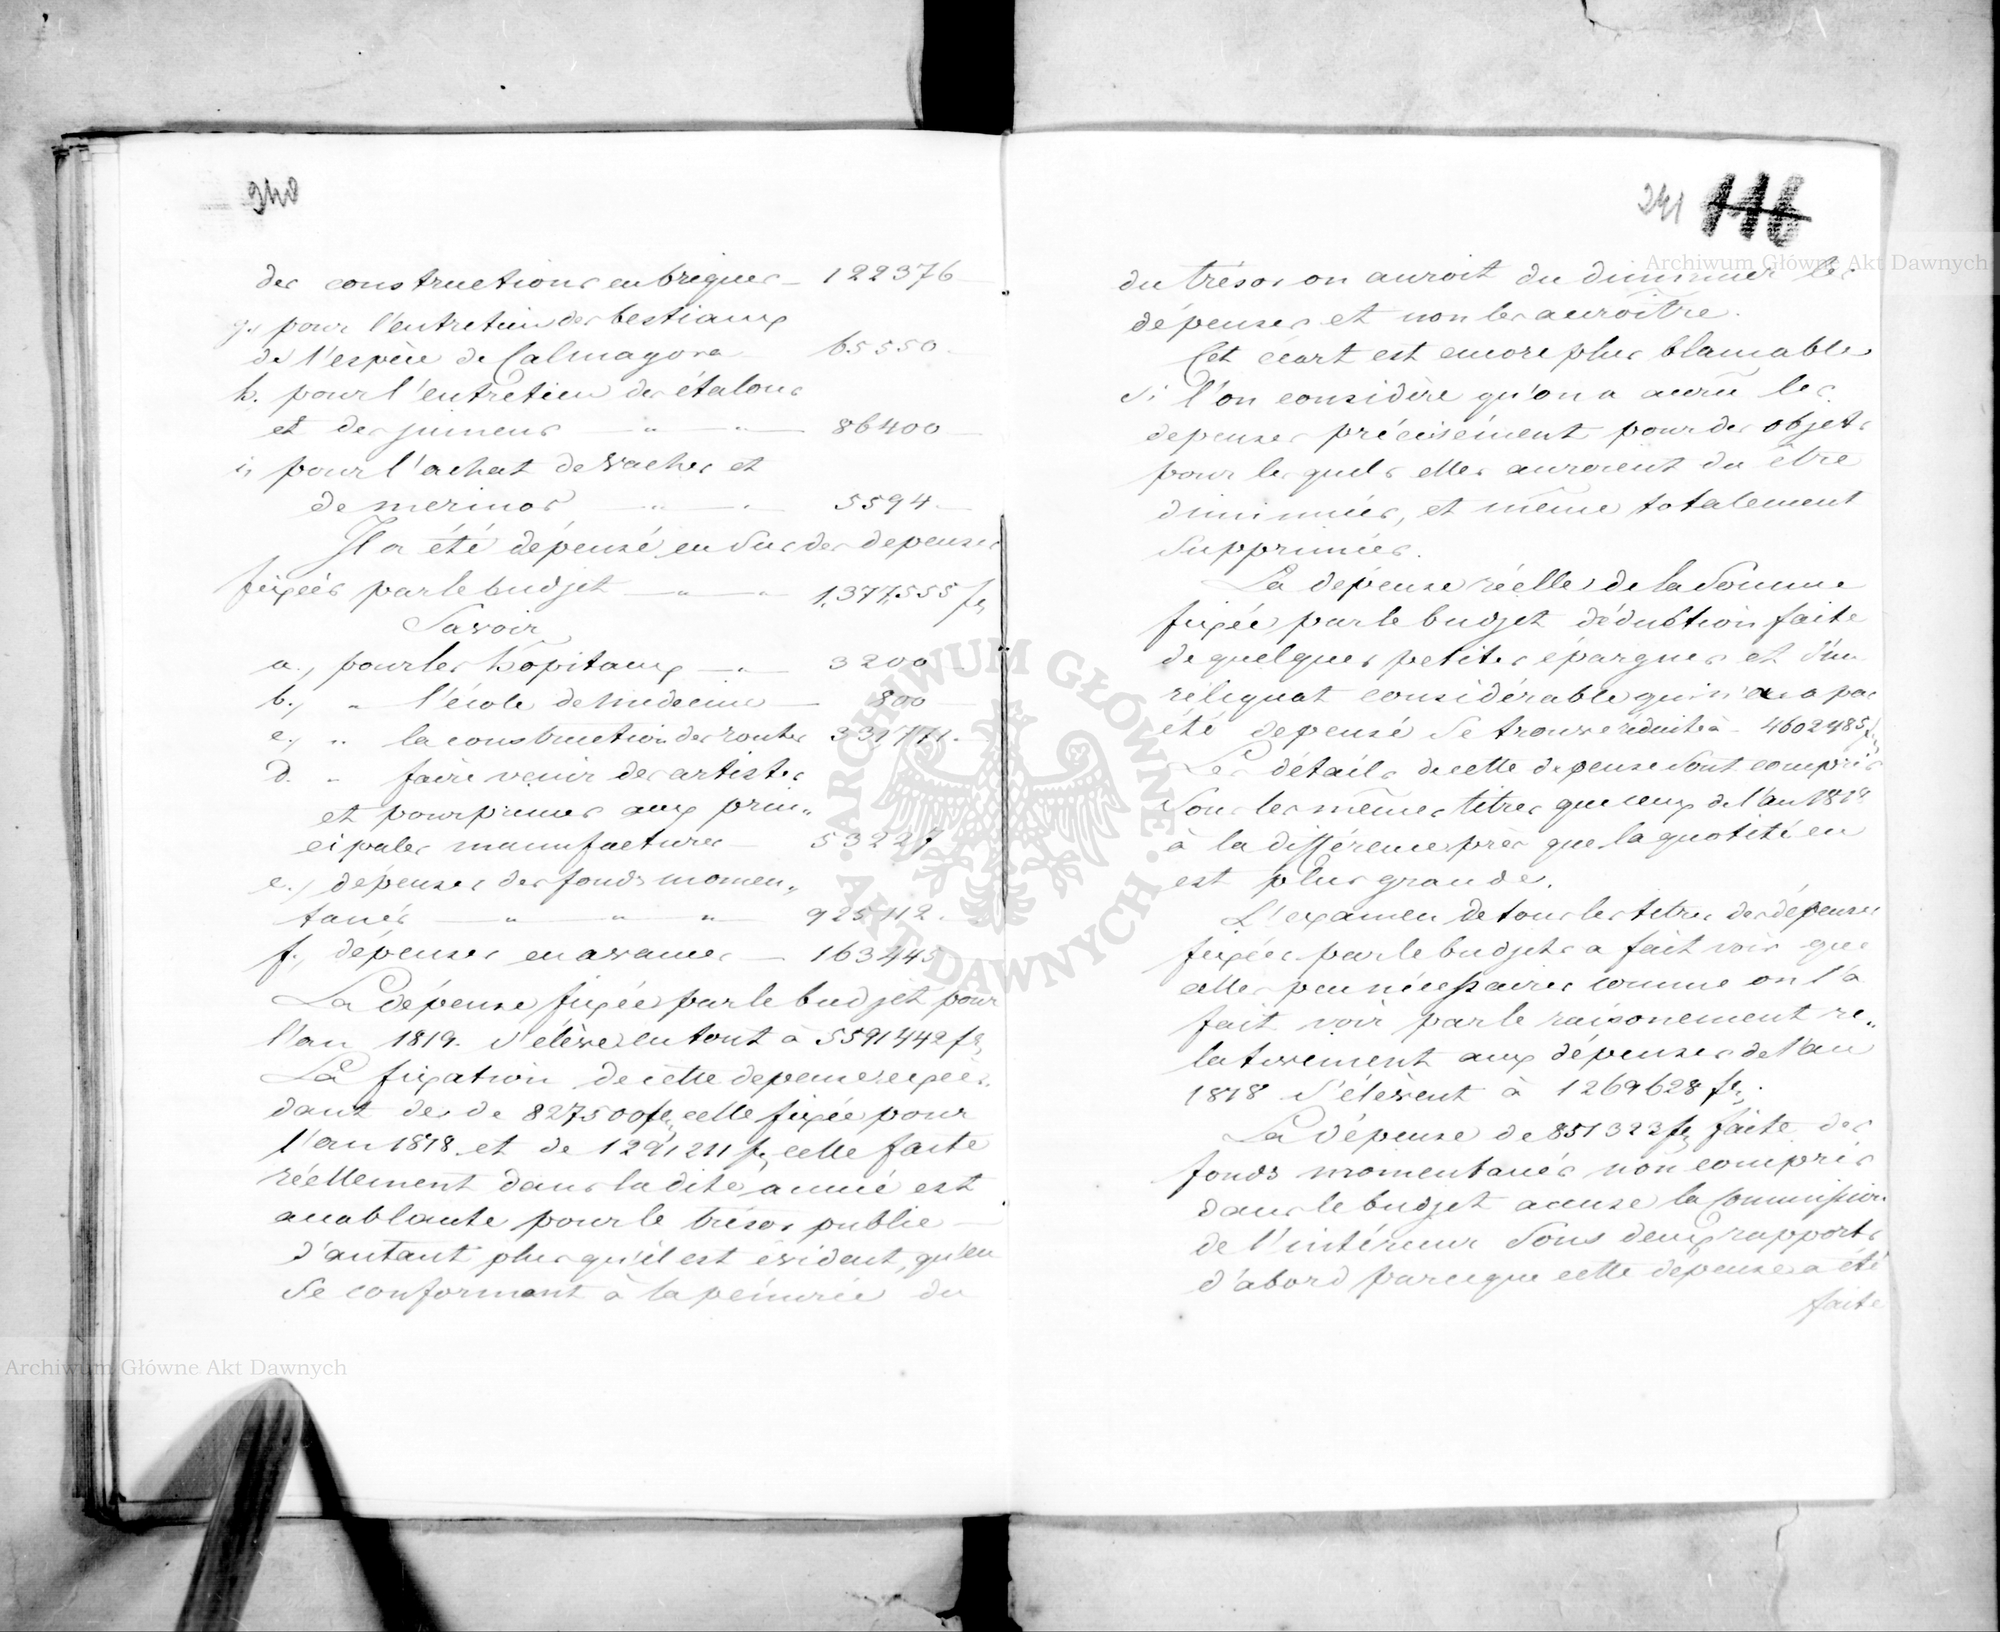 240
des constructions en briques — 122376 —
g. pour l'entretien des bestiaux
de l'espèce de Calmagora 65550.
h. pour l'entretien des étalons
et des jumens — " — " — 86400 —
i, pour l'achat de vaches et
de merinos — " — " — 5594. —
Il a été dépensé en sus des depenses
fixées par le budjet — " — " 1,377,555 fl,
Savoir
a., pour les hôpitaux — " — 3200 —
b., " l'école de médecine — 800 —
c., " la construction des routes 331771. —
d. " faire venir des artistes
et pour primes aux prin„
cipales manufactures — 53227
e., depenses des fonds momen„
tanés — " — " — " 925112. —
f., dépenses en avances — 163445
La dépense fixée par le budjet pour
l'an 1819. s'élève en tout à 5591442 fl,
La fixation de cette depense excé„
dant de de 827500 fl, celle fixée pour
l'an 1818 et de 1291211 fl, celle faite
réellement dans la dite année est
accablante pour le trésor public —
d'autant plus qu'il est évident, qu'en
se conformant à la pénurie du
241 116
du trésor on auroit du diminuer les
dépenses et non les accroître.
Cet écart est encore plus blamable
si l'on considère qu'on a accru les
depenses précisément pour des objets
pour lesquels elles auroient du être
diminuées, et même totalement
supprimées.
La dépense réelle de la somme
fixée par le budjet déduction faite
de quelques petites épargnes et d'un
réliquat considérable qui n'a pas
été depensé se trouve réduite à - 4602485 fl,
Les détails de cette depense sont compris
sous les mêmes titres que ceux de l'an 1818
à la différence près que la quotité en
est plus grande.
L'examen de tous les titres des dépenses
fixées par le budjet a fait voir que
celles peu nécessaires comme on l'a
fait voir par le raisonement re„
lativement aux dépenses de l'an
1818 s'élèvent à 1269628 fl,.
La dépense de 851323 fl, faite des
fonds momentanés non compris
dans le budjet accuse la Commission
de l'intérieur sous deux rapports
d'abord parceque cette depense a été
faite
Archiwum Główne Akt Dawnych
Archiwum Główne Akt Dawnych
ARCHIWUM GŁÓWNE AKT DAWNYCH